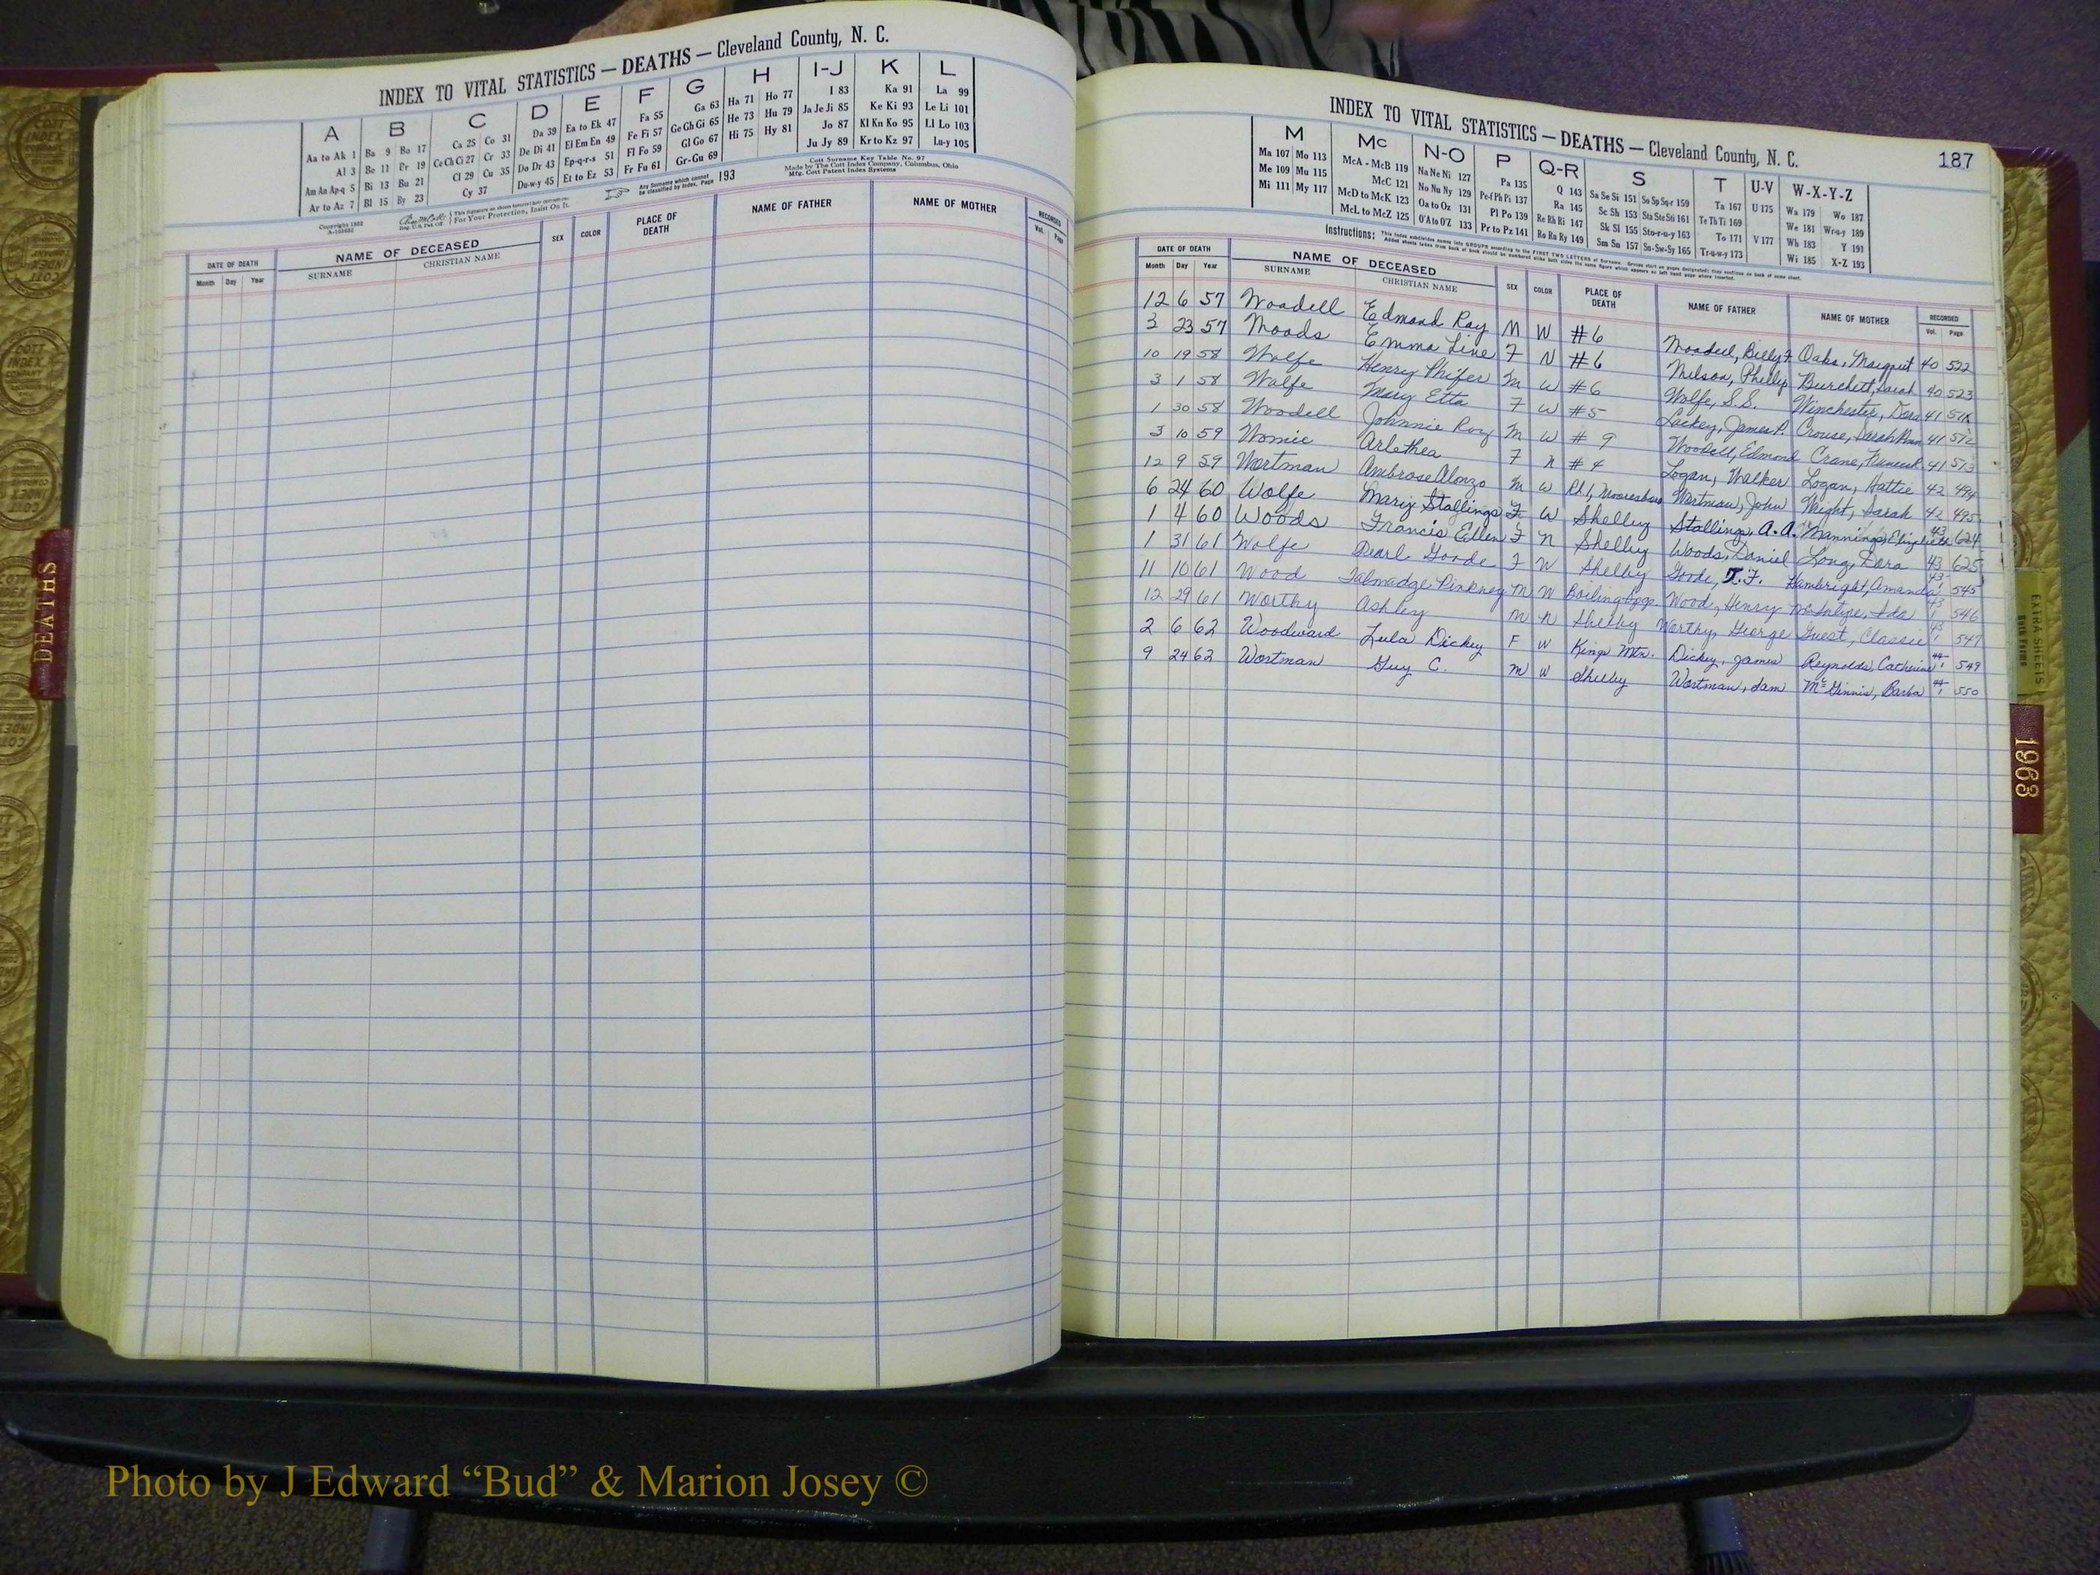 INDEX TO VITAL STATISTICS — DEATHS — Cleveland County, N. C.
A B C D E F G H I-J K L
Aa to Ak 1 Ba 9 Bo 17 Ca 25 Co 31 Da 39 Ea to Ek 47 Fa 55 Ga 63 Ha 71 Ho 77 I 83 Ka 91 La 99
Al 3 Be 11 Br 19 Ce Ch Ci 27 Cr 33 De Di 41 El Em En 49 Fe Fi 57 Ge Gh Gi 65 He 73 Hu 79 Ja Je Ji 85 Ke Ki 93 Le Li 101
Am An Ap-q 5 Bi 13 Bu 21 Cl 29 Cu 35 Do Dr 43 Ep-q-r-s 51 Fl Fo 59 Gl Go 67 Hi 75 Hy 81 Jo 87 Kl Kn Ko 95 Ll Lo 103
Ar to Az 7 Bl 15 By 23 Cy 37 Du-w-y 45 Et to Ez 53 Fr Fu 61 Gr-Gu 69 Ju Jy 89 Kr to Kz 97 Lu-y 105
Copyright 1952
A-103632
For Your Protection, Insist On It.
Any Surname which cannot be classified by Index, Page 193
Cott Surname Key Table No. 97
Made by The Cott Index Company, Columbus, Ohio
Mfg. Cott Patent Index Systems
DATE OF DEATH NAME OF DECEASED SEX COLOR PLACE OF DEATH NAME OF FATHER NAME OF MOTHER RECORDED
Month Day Year SURNAME CHRISTIAN NAME Vol. Page
INDEX TO VITAL STATISTICS — DEATHS — Cleveland County, N. C. 187
M Mc N-O P Q-R S T U-V W-X-Y-Z
Ma 107 Mo 113 McA - McB 119 Na Ne Ni 127 Pa 135 Q 143 Sa Se Si 151 So Sp Sq-r 159 Ta 167 U 175 Wa 179 Wo 187
Me 109 Mu 115 McC 121 No Nu Ny 129 Pe-f Ph Pi 137 Ra 145 Sc Sh 153 Sta Ste Sti 161 Te Th Ti 169 We 181 Wr-u-y 189
Mi 111 My 117 McD to McK 123 Oa to Oz 131 Pl Po 139 Re Rh Ri 147 Sk Sl 155 Sto-r-u-y 163 To 171 V 177 Wh 183 Y 191
McL to McZ 125 O'A to O'Z 133 Pr to Pz 141 Ro Ra Ry 149 Sm Sn 157 Su-Sw-Sy 165 Tr-u-w-y 173 Wi 185 X-Z 193
Instructions: This index subdivides names into GROUPS according to the FIRST TWO LETTERS of Surname.
DATE OF DEATH NAME OF DECEASED SEX COLOR PLACE OF DEATH NAME OF FATHER NAME OF MOTHER RECORDED
Month Day Year SURNAME CHRISTIAN NAME Vol. Page
12 6 57 Woodell Edmond Ray M W #6 Woodell, Billy F. Oaks, Margret 40 522
3 23 57 Woods Emma Line F N #6 Wilson, Phillip Burchett, Sarah 40 523
10 19 58 Wolfe Henry Phifer M W #6 Wolfe, S.S. Winchester, Dora 41
3 1 58 Wolfe Mary Etta F W #5 Lackey, James P. Crouse, Sarah Ann 41 512
1 30 58 Woodell Johnnie Roy M W #9 Woodell, Edmond Crane, 41 513
3 10 59 Womic Arlethea F N #4 Logan, Walker Logan, Hattie 42 494
12 9 59 Wortman Ambrose Alonzo M W Rt. 1, Mooresboro Wortman, John Wright, Sarah 42 495
6 24 60 Wolfe Mary Stallings F W Shelby Stallings, A. A. Manning, Elizabeth 43 624
1 4 60 Woods Francis Ellen F N Shelby Woods, Daniel Long, Dora 43 625
1 31 61 Wolfe Pearl Goode F W Shelby Goode, T. F. Hambright, Amanda 43 545
11 10 61 Wood Talmadge Pinkney M W Boiling Spgs. Wood, Henry McIntire, Ida 43 546
12 29 61 Worthy Ashley M N Shelby Worthy, George Guest, Classie 43 547
2 6 62 Woodward Lula Dickey F W Kings Mtn. Dickey, James Reynolds, Catherine 44 549
9 24 62 Wortman Guy C. M W Shelby Wortman, Sam McGinnis, Barba 44 550
DEATHS
EXTRA SHEETS
1963
Photo by J Edward “Bud” & Marion Josey ©